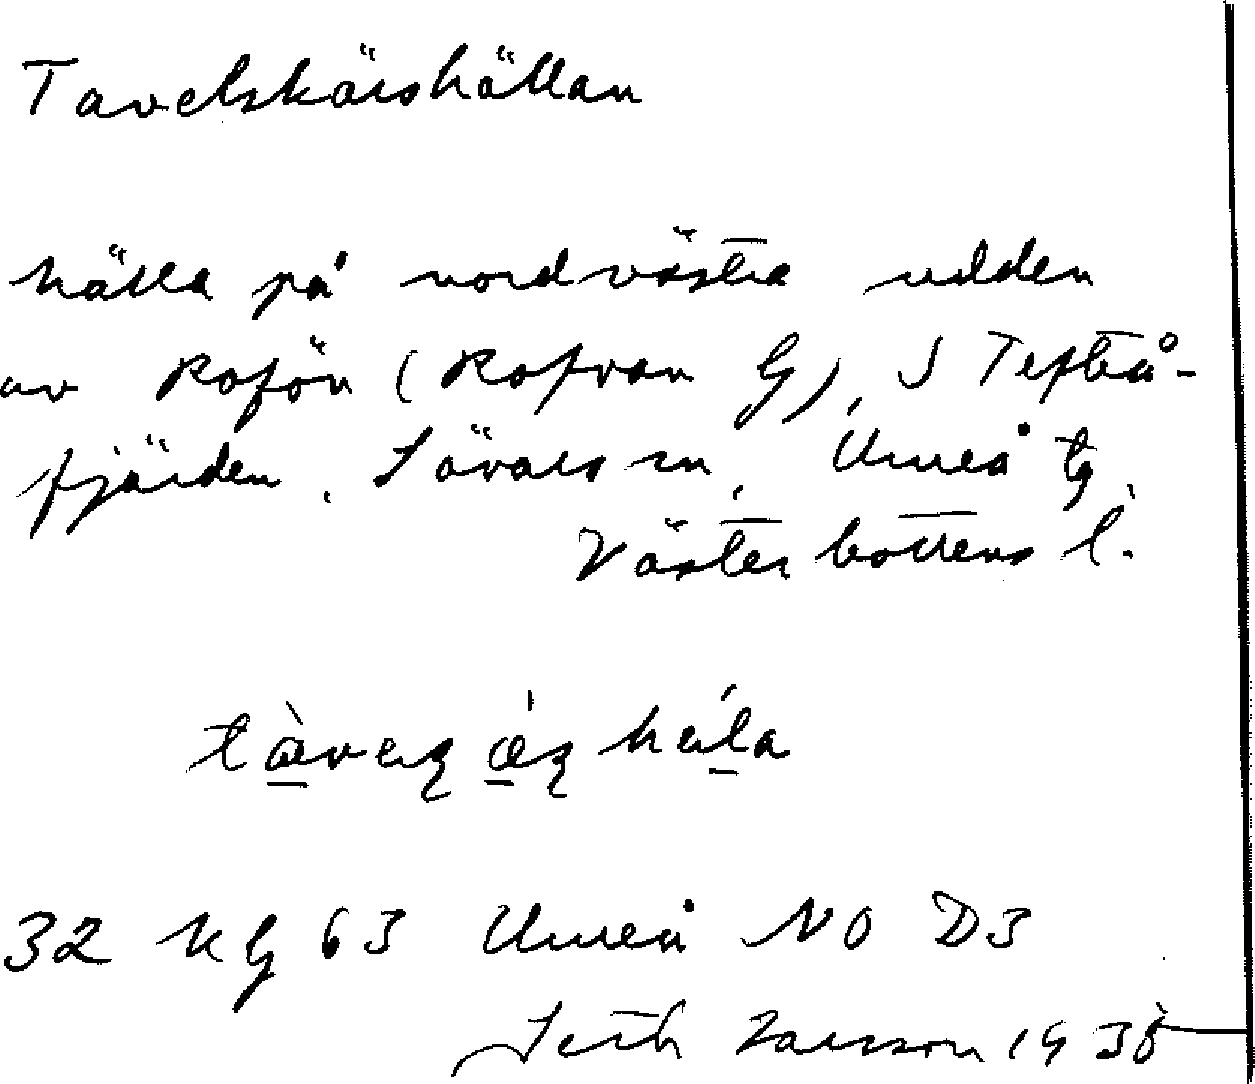 Tavelskärshällan
hälla på nordvästra udden
av Kofön (Kofvan G), S Tefteå-
fjärden, Sävars sn, Umeå tg
Västerbottens l.
32 KG 63 Umeå NO D3
Seth Larsson 1938